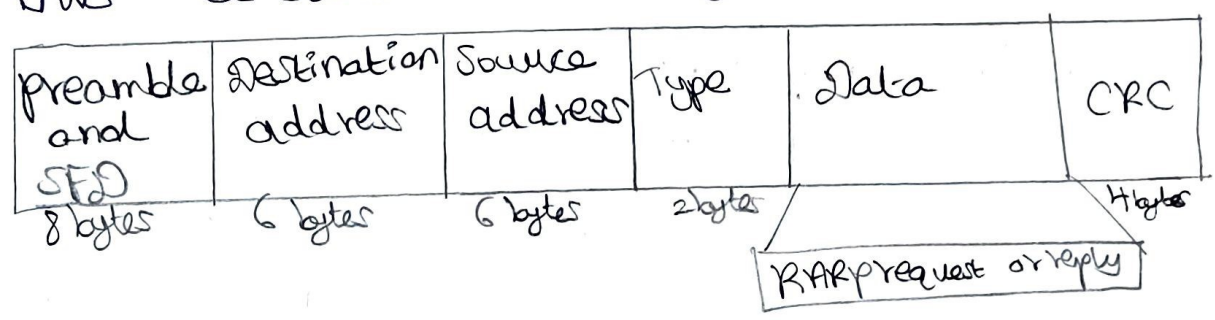 Preamble
and
SFD
Destination
address
Source
address
Type
Data
CRC
8 bytes
6 bytes
6 bytes
2 bytes
4 bytes
RARP request or reply